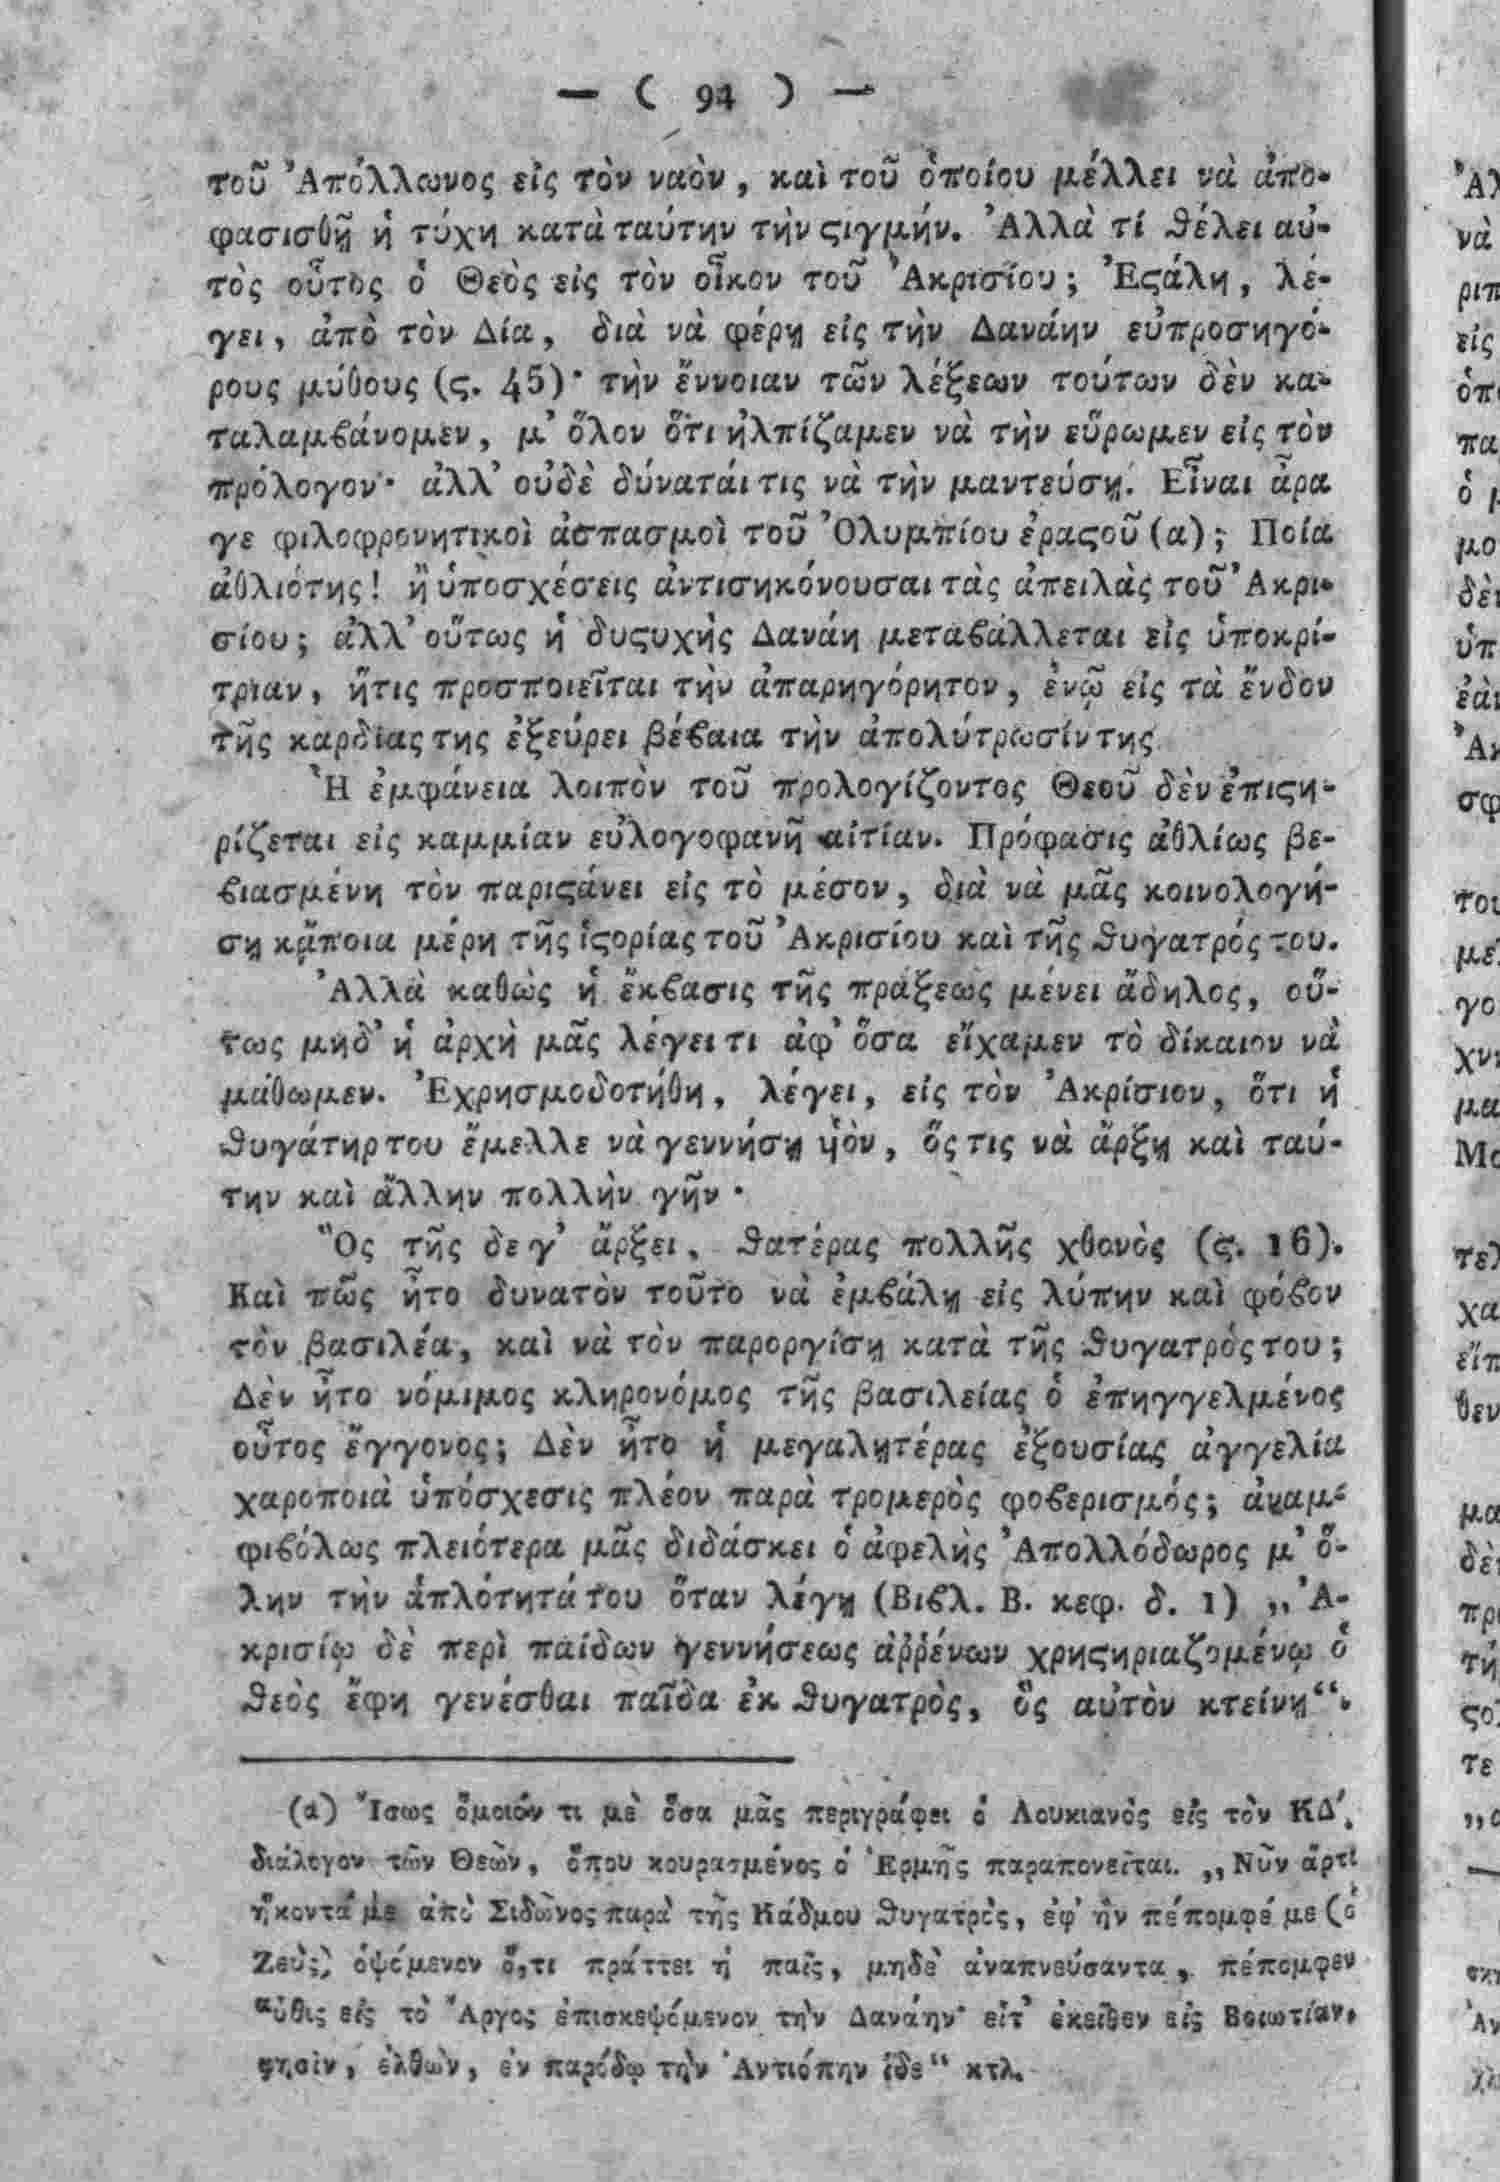 — ( 94 ) —
τοῦ Ἀπόλλωνος εἰς τὸν ναὸν, καὶ τοῦ ὁποίου μέλλει νὰ ἀπο-
φασισθῇ ἡ τύχη κατὰ ταύτην τὴν ϛιγμήν. Ἀλλὰ τί ϑέλει αὐ-
τὸς οὗτος ὁ Θεὸς εἰς τὸν οἶκον τοῦ Ἀκρισίου; Ἐϛάλη, λέ-
γει, ἀπὸ τὸν Δία, διὰ νὰ φέρῃ εἰς τὴν Δανάην εὐπροσηγό-
ρους μύθους (ϛ. 45)· τὴν ἔννοιαν τῶν λέξεων τούτων δὲν κα-
ταλαμϐάνομεν, μ' ὅλον ὅτι ἠλπίζαμεν νὰ τὴν εὕρωμεν εἰς τὸν
πρόλογον· ἀλλ' οὐδὲ δύναταί τις νὰ τὴν μαντεύσῃ. Εἶναι ἆρα
γε φιλοφρονητικοὶ ἀσπασμοὶ τοῦ Ὀλυμπίου ἐραϛοῦ (α); Ποία
ἀθλιότης! ἢ ὑποσχέσεις ἀντισηκόνουσαι τὰς ἀπειλὰς τοῦ Ἀκρι-
σίου; ἀλλ' οὕτως ἡ δυϛυχὴς Δανάη μεταϐάλλεται εἰς ὑποκρί-
τριαν, ἥτις προσποιεῖται τὴν ἀπαρηγόρητον, ἐνῷ εἰς τὰ ἔνδον
τῆς καρδίας της ἐξεύρει βέϐαια τὴν ἀπολύτρωσίν της.
Ἡ ἐμφάνεια λοιπὸν τοῦ προλογίζοντος Θεοῦ δὲν ἐπιϛη-
ρίζεται εἰς καμμίαν εὐλογοφανῆ αἰτίαν. Πρόφασις ἀθλίως βε-
ϐιασμένη τὸν παριϛάνει εἰς τὸ μέσον, διὰ νὰ μᾶς κοινολογή-
σῃ κᾄποια μέρη τῆς ἱϛορίας τοῦ Ἀκρισίου καὶ τῆς ϑυγατρός του.
Ἀλλὰ καθὼς ἡ ἔκϐασις τῆς πράξεως μένει ἄδηλος, οὕ-
τως μηδ' ἡ ἀρχὴ μᾶς λέγει τι ἀφ' ὅσα εἴχαμεν τὸ δίκαιον νὰ
μάθωμεν. Ἐχρησμοδοτήθη, λέγει, εἰς τὸν Ἀκρίσιον, ὅτι ἡ
ϑυγάτηρ του ἔμελλε νὰ γεννήσῃ υἱὸν, ὅς τις νὰ ἄρξῃ καὶ ταύ-
την καὶ ἄλλην πολλὴν γῆν·
Ὃς τῆς δε γ' ἄρξει, ϑατέρας πολλῆς χθονὸς (ϛ. 16).
Καὶ πῶς ἦτο δυνατὸν τοῦτο νὰ ἐμϐάλῃ εἰς λύπην καὶ φόϐον
τὸν βασιλέα, καὶ νὰ τὸν παροργίσῃ κατὰ τῆς ϑυγατρός του;
Δὲν ἦτο νόμιμος κληρονόμος τῆς βασιλείας ὁ ἐπηγγελμένος
οὗτος ἔγγονος; Δὲν ἦτο ἡ μεγαλῃτέρας ἐξουσίας ἀγγελία
χαροποιὰ ὑπόσχεσις πλέον παρὰ τρομερὸς φοϐερισμός; ἀναμ-
φιϐόλως πλειότερα μᾶς διδάσκει ὁ ἀφελὴς Ἀπολλόδωρος μ' ὅ-
λην τὴν ἁπλότητά του ὅταν λέγῃ (Βιϐλ. Β. κεφ. δ. 1) „Ἀ-
κρισίῳ δὲ περὶ παίδων γεννήσεως ἀῤῥένων χρηϛηριαζομένῳ ὁ
ϑεὸς ἔφη γενέσθαι παῖδα ἐκ ϑυγατρὸς, ὃς αὐτὸν κτείνῃ“.
(α) Ἴσως ὅμοιόν τι μὲ ὅσα μᾶς περιγράφει ὁ Λουκιανὸς εἰς τὸν ΚΔ'.
διάλογον τῶν Θεῶν, ὅπου κουρασμένος ὁ Ἑρμῆς παραπονεῖται. „Νῦν ἄρτι
ἥκοντά με ἀπὸ Σιδῶνος παρὰ τῆς Κάδμου ϑυγατρὸς, ἐφ' ἣν πέπομφέ με (ὁ
Ζεὺς) ὀψόμενον ὅ,τι πράττει ἡ παῖς, μηδὲ ἀναπνεύσαντα, πέπομφεν
αὖθις εἰς τὸ Ἄργος ἐπισκεψόμενον τὴν Δανάην· εἶτ' ἐκεῖθεν εἰς Βοιωτίαν,
φησὶν, ἐλθὼν, ἐν παρόδῳ τὴν Ἀντιόπην ἴδε“ κτλ.